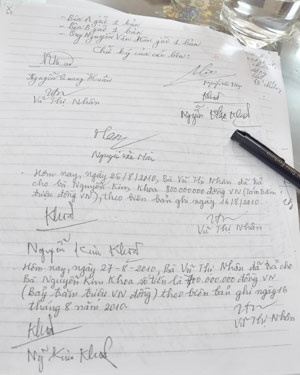 - Bên A giữ 1 bản
- Bên B giữ 1 bản
- Ông Nguyễn Văn Hiền giữ 1 bản
Chữ ký của các bên:
Nguyễn Quang Huân
Vũ Thị Nhân
Nguyễn Kim Khoa
Nguyễn Văn Hiền
- Hôm nay, ngày 26/8/2010, Bà Vũ Thị Nhân đã trả
cho bà Nguyễn Kim Khoa 800.000.000 đồng VN (Tám trăm
triệu VN), theo biên bản ghi ngày 16/8/2010.
Vũ Thị Nhân
Nguyễn Kim Khoa
Hôm nay, ngày 27-8-2010, Bà Vũ Thị Nhân đã trả cho
Bà Nguyễn Kim Khoa số tiền là 700.000.000 đồng VN
(bảy trăm triệu VN đồng) theo biên bản ghi ngày 16
tháng 8 năm 2010.
Vũ Thị Nhân
Ng Kim Khoa